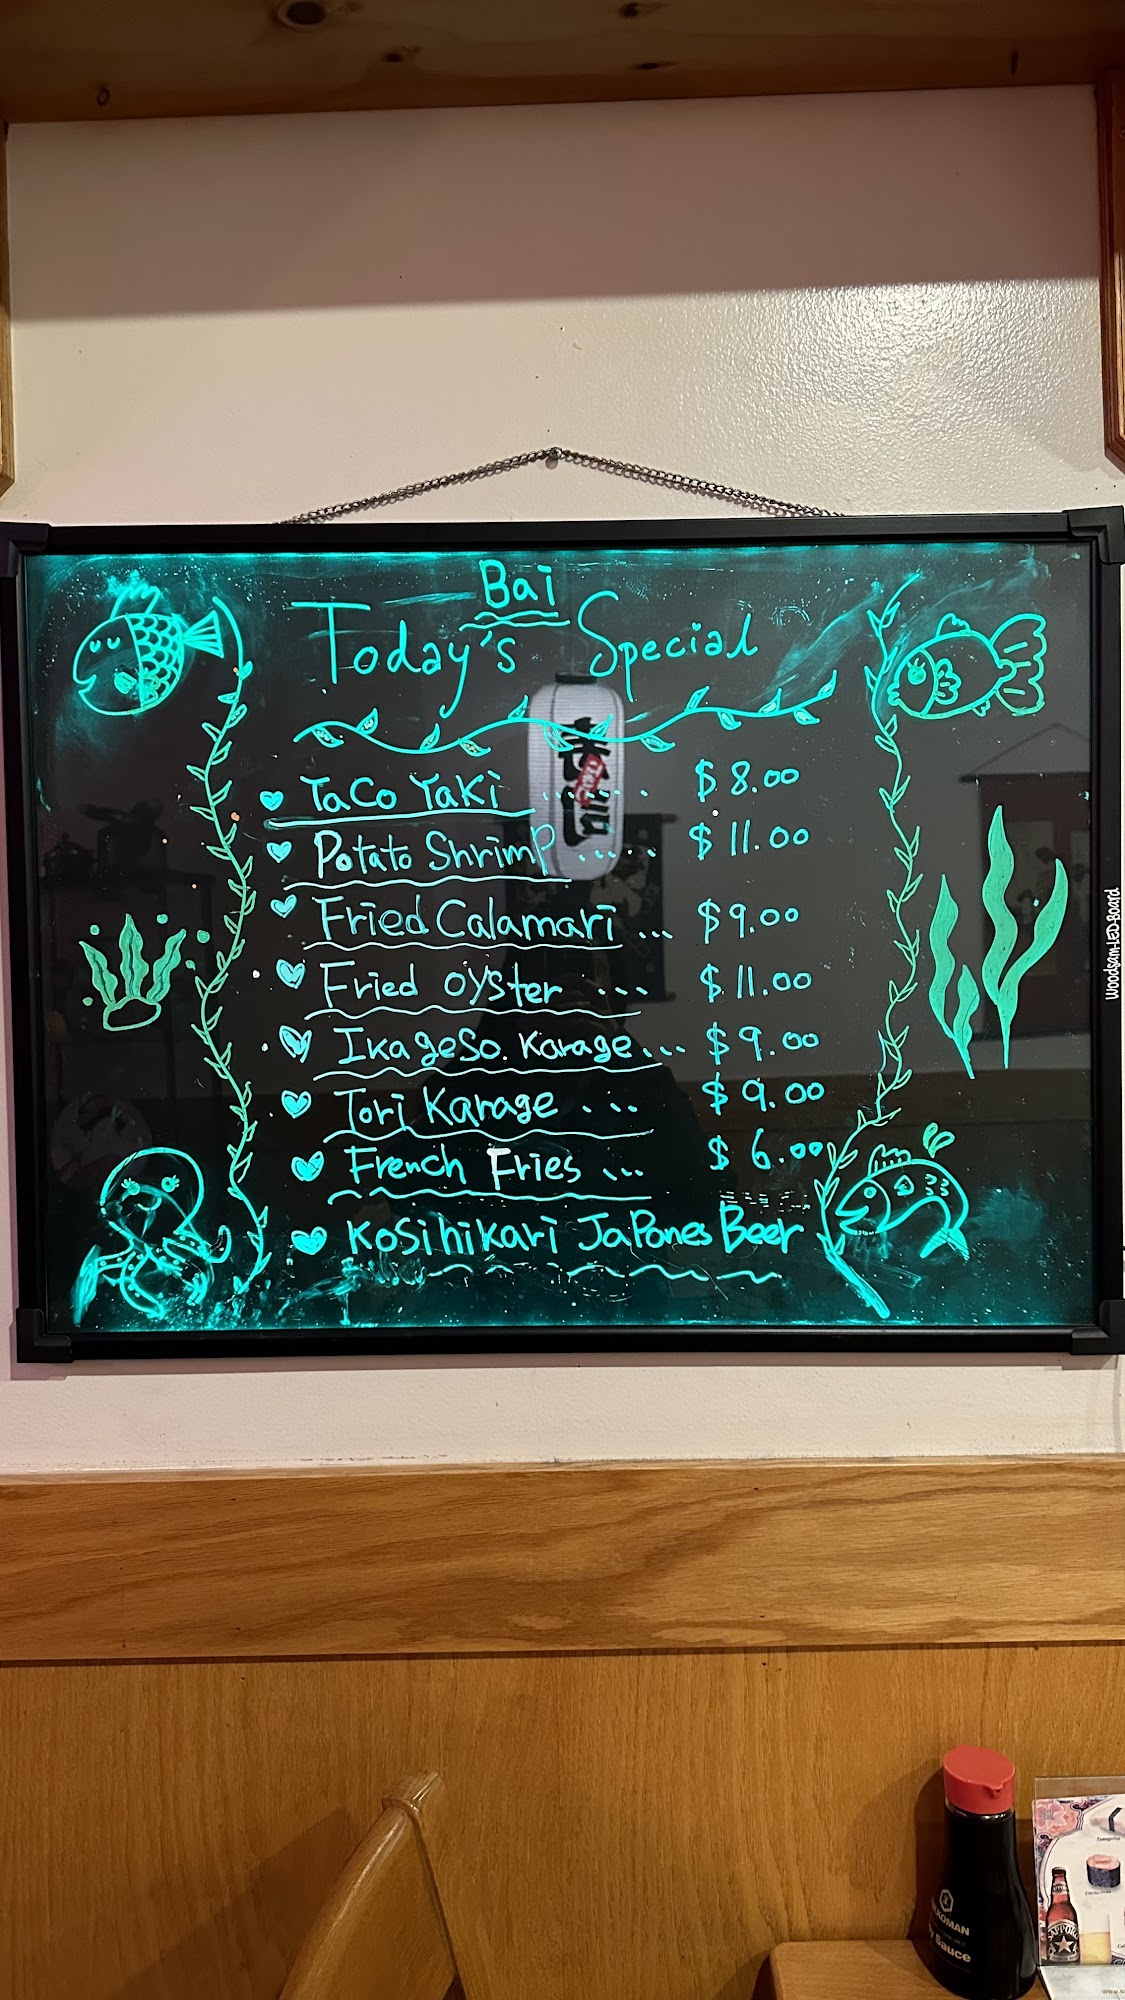 Bai
Today's Special
TaCo YaKi ........ $8.00
Potato ShrimP ..... $11.00
Fried Calamari ... $9.00
Fried oyster ... $11.00
Ika geso. Karage... $9.00
Tori Karage ... $9.00
French Fries ... $6.00
Kosihikari JaPones Beer
Woodsam-LED-Board
KIKKOMAN
Soy Sauce
SAPPORO